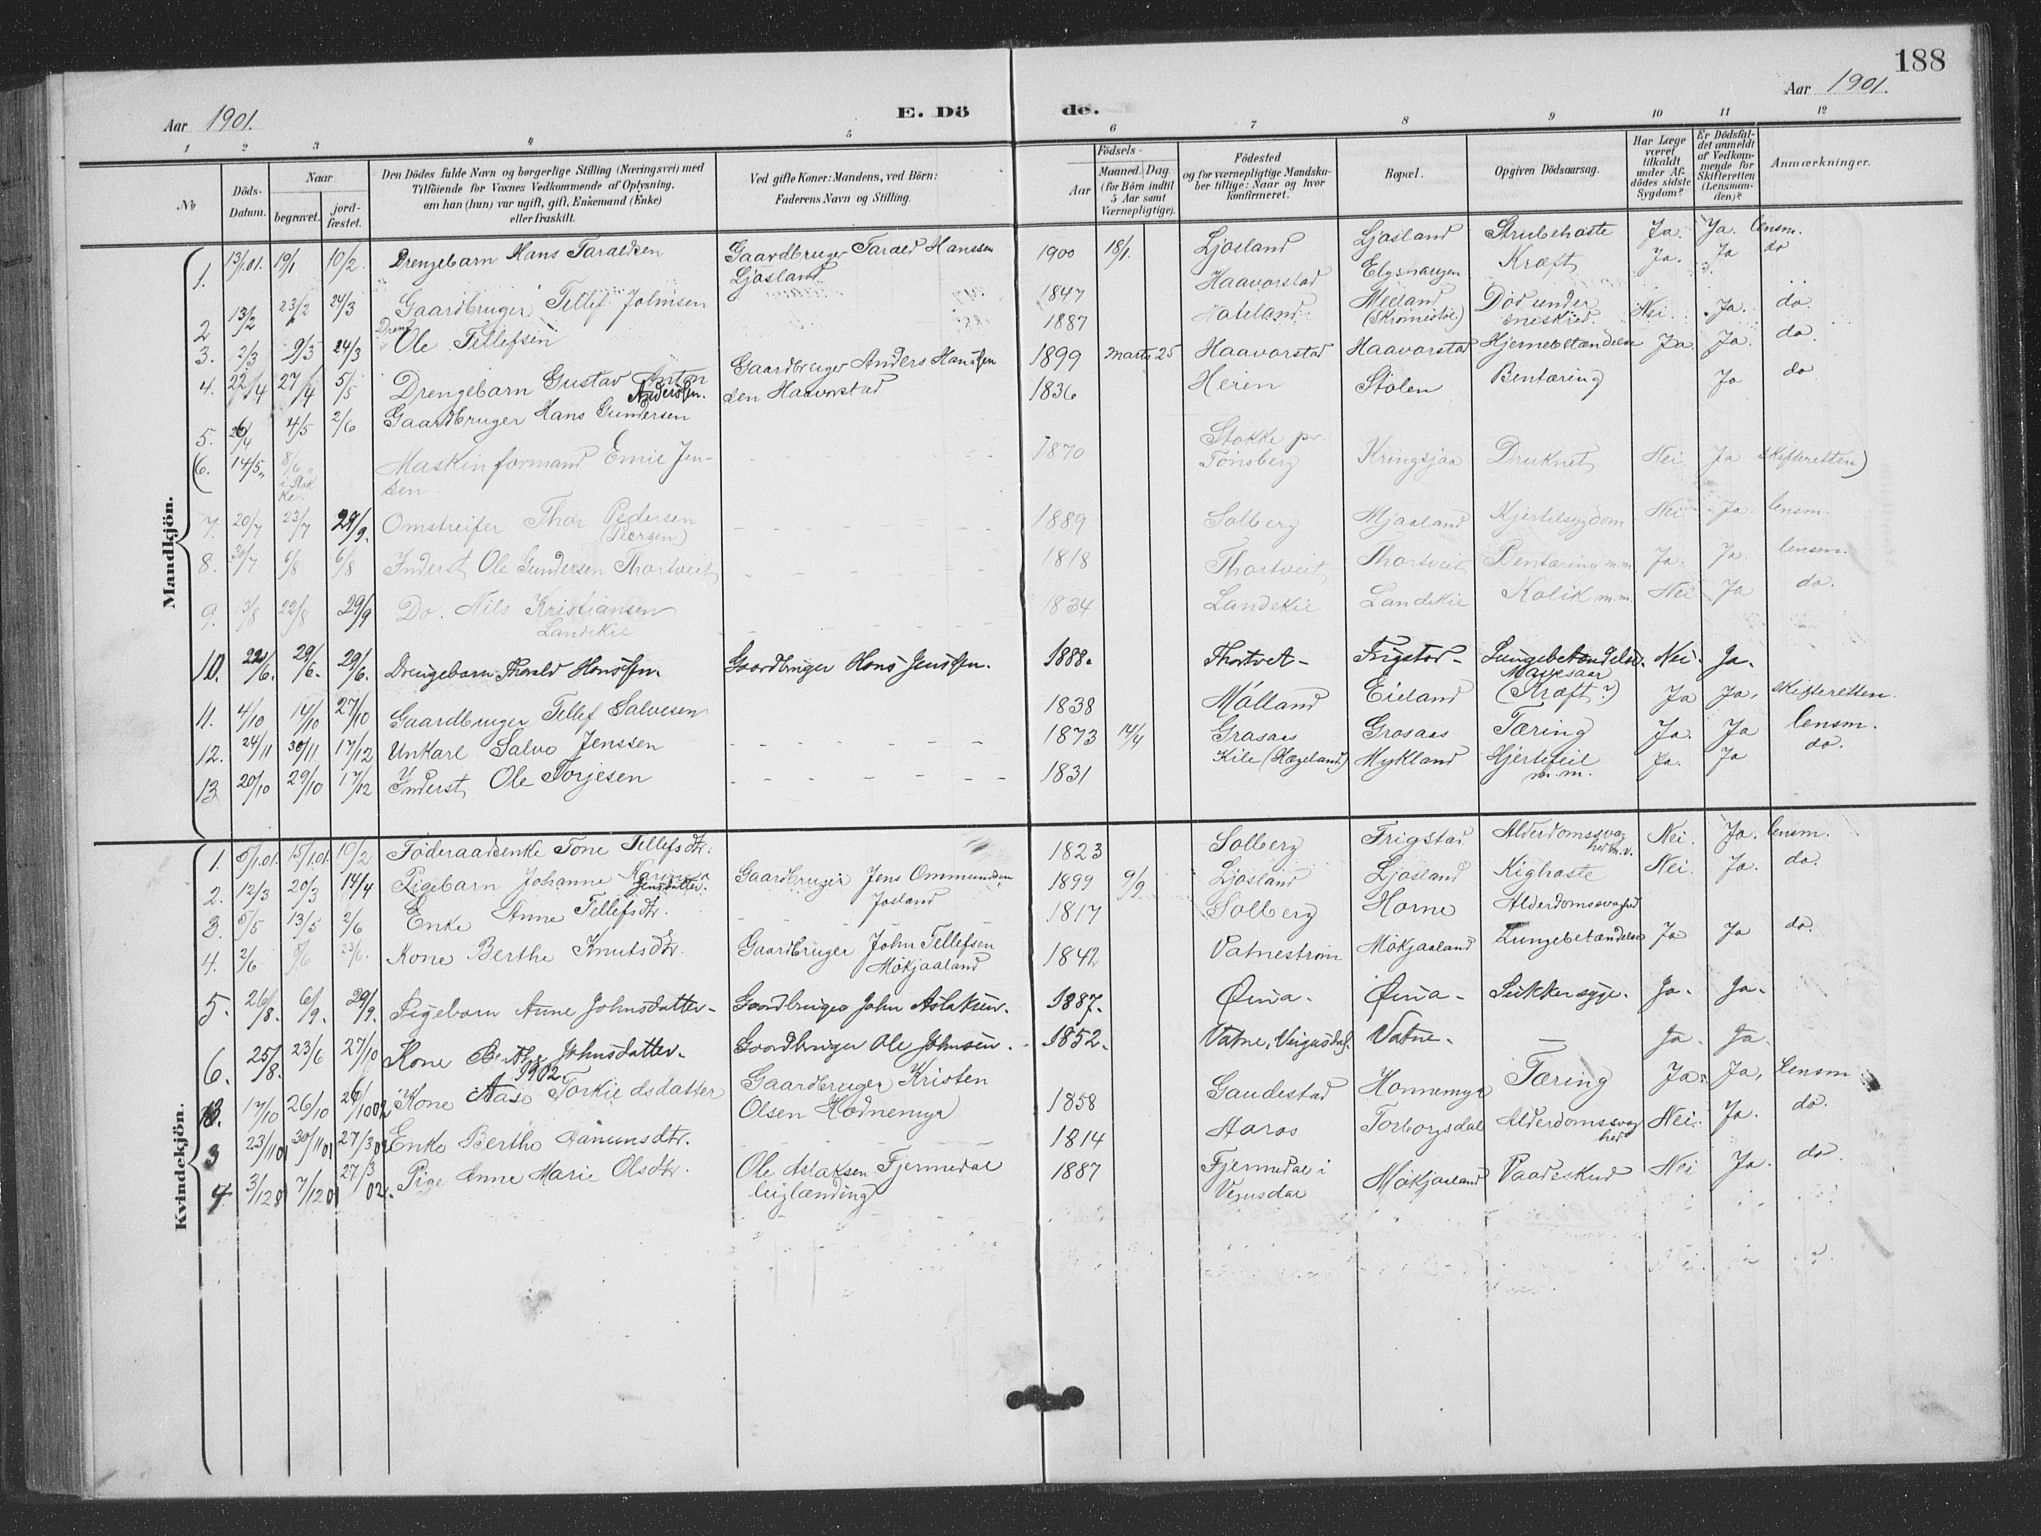 188
Aar 1901. E. Dö de. Aar 1901.
1 2 3 4 5 6 7 8 9 10 11 12
№
Döds-Datum.
Naar
begravet.
jord-fæstet.
Den Dödes fulde Navn og borgerlige Stilling (Næringsvei) med
Tilföiende for Voxnes Vedkommende af Oplysning,
om han (hun) var ugift, gift, Enkemand (Enke)
eller fraskilt.
Ved gifte Koner: Mandens, ved Börn:
Faderens Navn og Stilling.
Födsels-
Aar
Maaned. Dag.
(for Börn indtil
5 Aar samt
Værnepligtige).
Födested
og for værnepligtige Mandska-
ber tillige: Naar og hvor
konfirmeret.
Bopæl.
Opgiven Dödsaarsag.
Har Læge
været
tilkaldt
under Af-
dödes sidste
Sygdom?
Er Dödsfal-
det anmeldt
af Vedkom-
mende for
Skifteretten
(Lensman-
den)?
Anmærkninger.
Mandkjön.
1. 13/1.01. 19/1 10/2. Drengebarn Hans Taraldsen Gaardbruger Tarald Hanssen Ljosland 1900 18/1. Ljosland Ljosland Strubehoste Ja. Ja. lensm.
2 13/2 23/2 24/3 Gaardbruger Tellef Johnsen 1847 Haavorstad Elgshaugen Kræft Ja. Ja do
3. 2/3 9/3 24/3 Dreng Ole Tellefsen 1887 Hateland Mæland (Skromestøl) Død under sneskred. Nei. Ja. do.
4. 22/4 27/4 5/5 Drengebarn Gustav Anton Anderssen. Gaardbruger Anders Hanssen Haavorstad 1899 Marts 25 Haavorstad Haavorstad Hjernebetændelse Ja. Ja. do.
5. 26/4 4/5 2/6 Gaardbruger Hans Gundersen 1836 Heren Stolen Bentæring Ja do
6. 14/5 8/6 i Stokke. Maskinformand Emil Jensen 1870 Stokke pr. Tønsberg Kringsjaa Druknet Nei. Ja skifteretten)
7. 20/7 23/7 29/9. Omstreifer Thor Pedersen (Peersen) 1889 Solberg Mjaaland Kjertelsygdom Nei. Ja. lensm.
8. 30/7 6/8 6/8 Inderst Ole Gundersen Thortveit 1818 Thortveit Thortveit Bentæring m.m. Ja. Ja. lensm.
9. 13/8 22/8 29/9 Do. Nils Kristiansen Landekil 1834 Landekil Landekil Kolik m.m. Nei Ja do.
10. 22/6. 29/6. 29/6. Drengebarn Tharald Hanssen. Gaardbruger Hans Jenssen. 1888. Thortvet Frigstad Lungebetændelse. Nei. Ja.
11. 4/10 14/10 27/10 Gaardbruger Tellef Salvesen 1838 Mølland Eieland Mavesaar (Kræft?) Ja Ja. skifteretten.
12. 24/11 30/11 17/12 Unkarl Salve Jenssen 1873 14/4 Grasaas Grosaas Tæring Ja. Ja lensm.
13 20/10 29/10 17/12 Inderst Ole Torjesen 1831 Kile (Hægeland) Mykland Hjertefeil m.m. Ja. Ja do.
Kvindekjön.
1. 5/1.01. 15/1.01. 10/2 Føderaadsenke Tone Tellefsdtr. 1823 Solberg Frigstad Alderdomssvaghed m.v. Nei. Ja. lensm.
2. 12/3 20/3 14/4 Pigebarn Johanne Jensdatter. Gaardbruger Jens Ommundsen Josland 1899 9/9. Ljosland Ljosland Kighoste Nei. Ja. do.
3. 5/5 13/5 2/6 Enke Anne Tellefsdtr. 1817 Solberg Horne Alderdomssvaghed
4. 2/6 8/6 23/6. Kone Berthe Knutsdtr. Gaardbruger John Tellefsen Møkjaaland 1842 Vatnestrøm Møkjaaland Lungebetændelse Ja Ja do.
5. 26/8. 6/9. 29/9. Pigebarn Anne Johnsdatter Gaardbruger John Aslaksen. 1887. Sukkersyge. Ja. Ja.
6. 25/8. 23/6 27/10 Kone Berthe Johnsdatter. Gaardbruger Ole Johnsen. 1852. Vatne, Veigusdal. Vatne. — Ja. Ja.
17/10 26/10 26/1002 1902. Kone Aase Torkildsdatter Gaardbruger Kristen Olsen Hodnemyr 1858 Gaudestad Honnemyr Tæring Ja. Ja, lensm
3 23/1101 30/1101 27/302 Enke Berthe Aanensdtr. 1814 Aaros Torborgsdal Alderdomssvaghed Nei. Ja. do.
4 3/1201 7/1201 27/3 02. Pige Anne Marie Olsdtr. Ole Aslaksen Fjermedal leiglænding 1887 Fjermedal i Vegusdal Møkjaaland Vaadeskud Nei Ja. do.